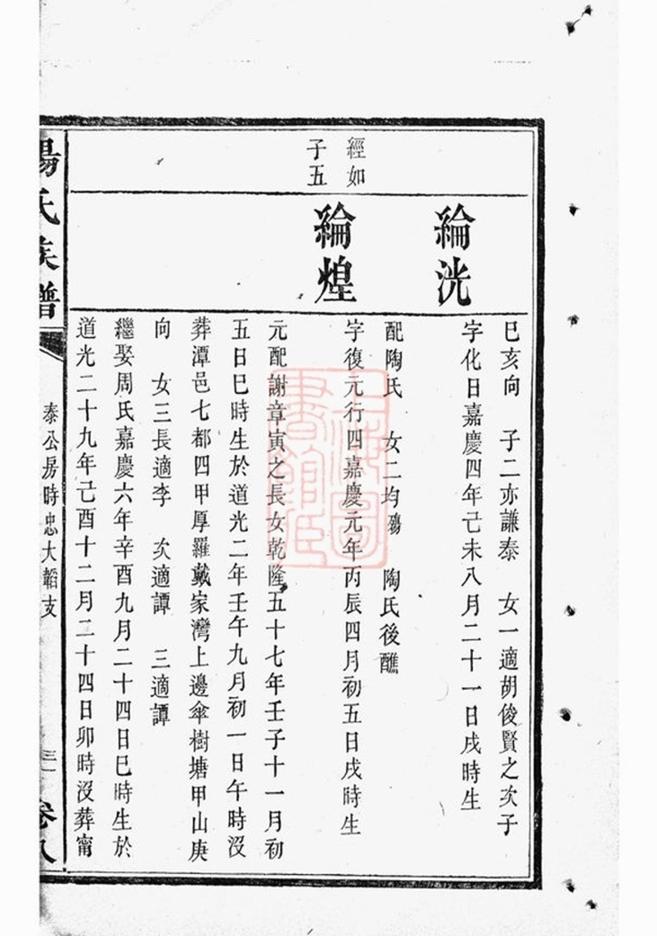 巳亥向　子二亦謙泰　女一適胡俊賢之次子
綸洸
字化日嘉慶四年己未八月二十一日戌時生
配陶氏　女二均殤　陶氏後醮
經如
子五
綸煌
字復元行四嘉慶元年丙辰四月初五日戌時生
元配謝章寅之長女乾隆五十七年壬子十一月初
五日巳時生於道光二年壬午九月初一日午時沒
葬潭邑七都四甲厚羅戴家灣上邊傘樹塘甲山庚
向　女三長適李　次適譚　三適譚
繼娶周氏嘉慶六年辛酉九月二十四日巳時生於
道光二十九年己酉十二月二十四日卯時沒葬甯
昜氏族譜
泰公房時忠大韜支
卷八
上海圖
書館臧